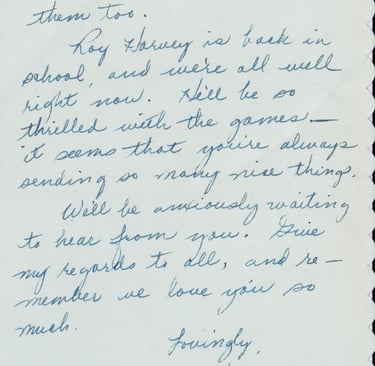 them too.
Roy Harvey is back in
school, and we're all well
right now. He'll be so
thrilled with the games —
it seems that you're always
sending so many nice things.
We'll be anxiously waiting
to hear from you. Give
my regards to all, and re-
member we love you so
much.
Lovingly,